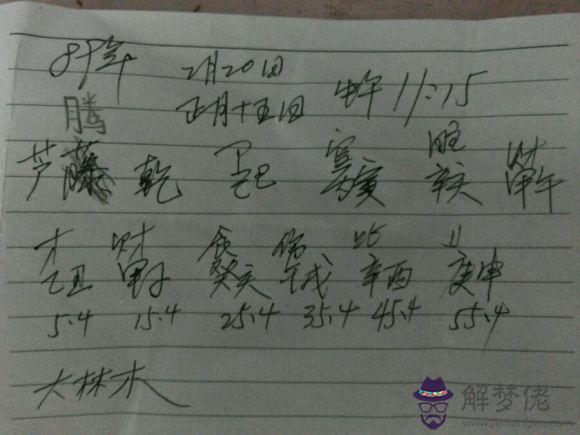 89年 2月20日
正月十五日 中午 11:15
腾
芦藤 乾 己巳 丙寅 辛亥 甲午
才 财 食 伤 比 刂
乙丑 甲子 癸亥 壬戌 辛酉 庚申
5.4 15.4 25.4 35.4 45.4 55.4
大林木
解梦佬